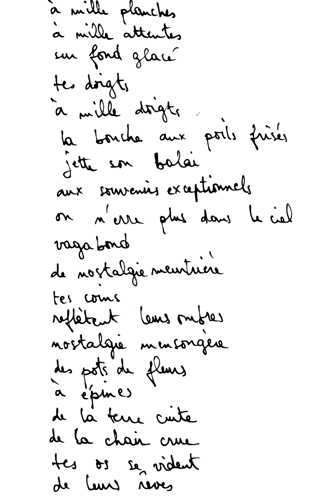 à mille planches
à mille attentes
sur fond glacé
tes doigts
à mille doigts
la bouche aux poils frisés
jette son balai
aux souvenirs exceptionnels
on n'erre plus dans le ciel
vagabond
de nostalgie meurtrière
tes coins
reflètent leurs ombres
nostalgie mensongère
des pots de fleurs
à épines
de la terre cuite
de la chair crue
tes os se vident
de leurs rêves